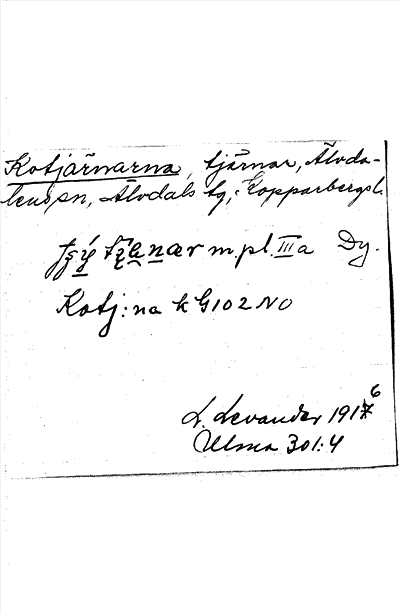 Kotjärnarna, tjärnar, Älvda-
lens sn, Älvdals tg, Kopparbergs l.
m.pl. III a Dy.
Kotj:na k G102 NO
L. Levander 1916
Ulma 301:4